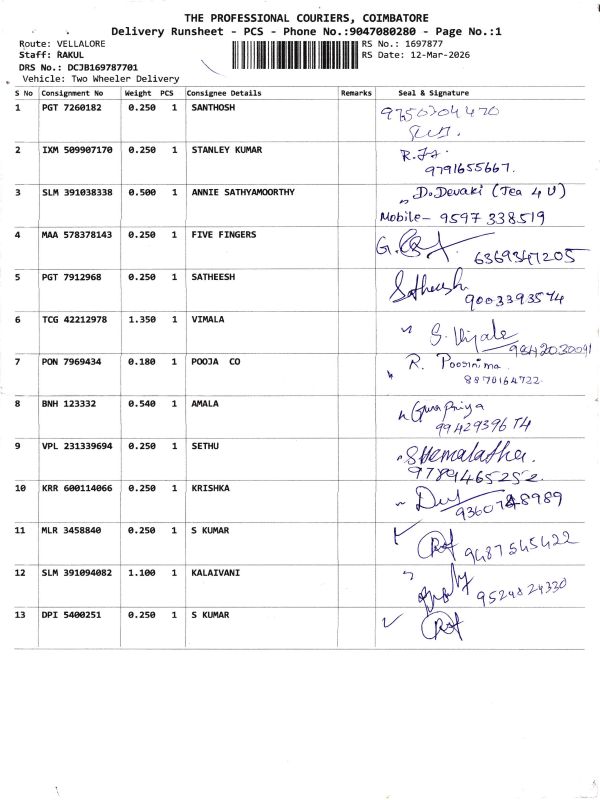 THE PROFESSIONAL COURIERS, COIMBATORE
Delivery Runsheet - PCS - Phone No.:9047080280 - Page No.:1
Route: VELLALORE RS No.: 1697877
Staff: RAKUL RS Date: 12-Mar-2026
DRS No.: DCJB169787701
Vehicle: Two Wheeler Delivery
S No Consignment No Weight PCS Consignee Details Remarks Seal & Signature
1 PGT 7260182 0.250 1 SANTHOSH 9750704470
2 IXM 509907170 0.250 1 STANLEY KUMAR
9791655667.
3 SLM 391038338 0.500 1 ANNIE SATHYAMOORTHY D. Devaki (Tea 4 U)
Mobile- 9597 338519
4 MAA 578378143 0.250 1 FIVE FINGERS
6369347205
5 PGT 7912968 0.250 1 SATHEESH Satheesh
9003393574
6 TCG 42212978 1.350 1 VIMALA
9842030091
7 PON 7969434 0.180 1 POOJA CO R. Poornima.
8870164722.
8 BNH 123332 0.540 1 AMALA Gurupriya
9942939674
9 VPL 231339694 0.250 1 SETHU S Hemalatha.
9789465252.
10 KRR 600114066 0.250 1 KRISHKA
11 MLR 3458840 0.250 1 S KUMAR
9487545422
12 SLM 391094082 1.100 1 KALAIVANI
9524824330
13 DPI 5400251 0.250 1 S KUMAR